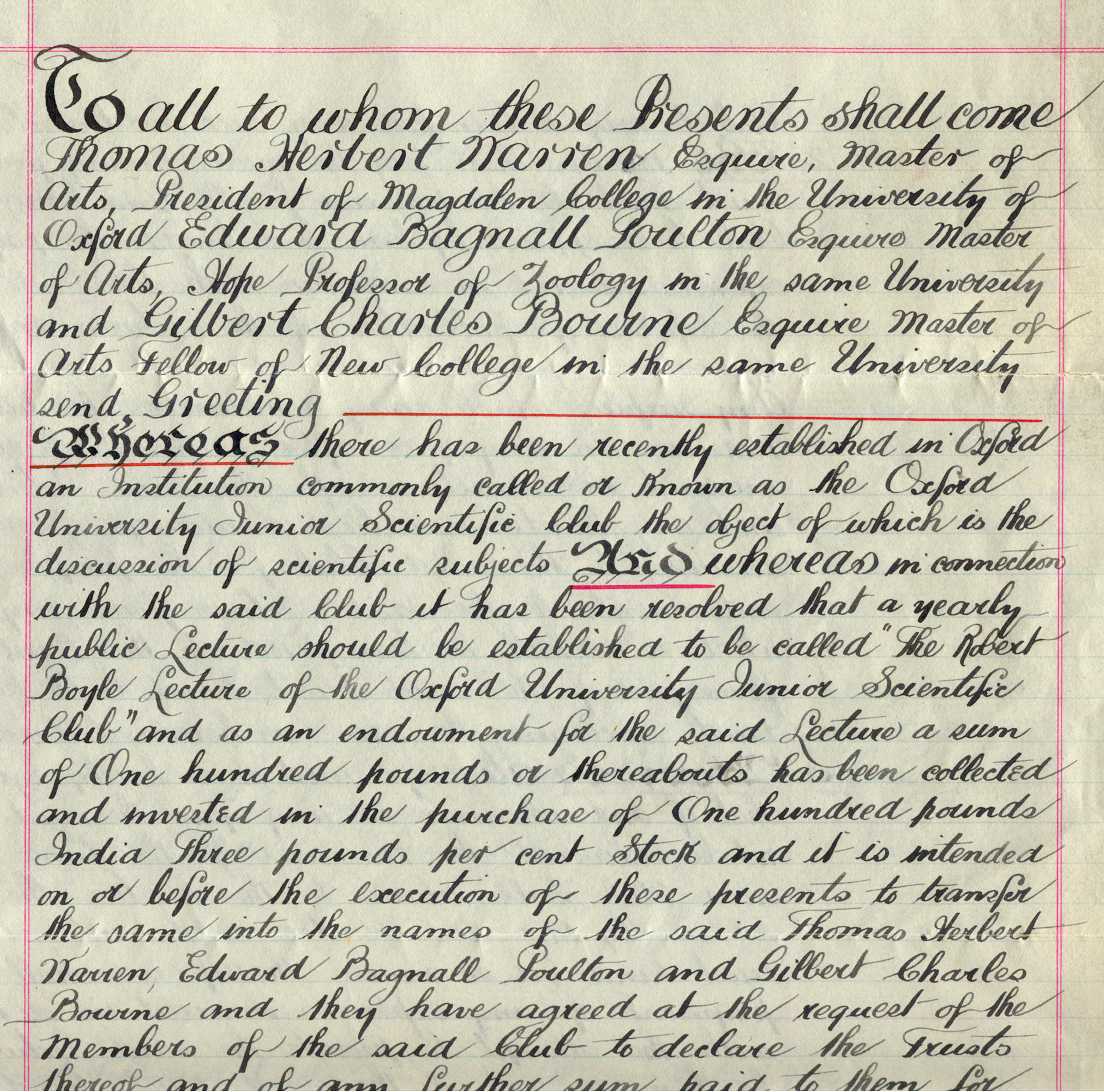 To all to whom these Presents shall come
Thomas Herbert Warren Esquire, Master of
Arts, President of Magdalen College in the University of
Oxford Edward Bagnall Poulton Esquire Master
of Arts, Hope Professor of Zoology in the same University
and Gilbert Charles Bourne Esquire Master of
Arts Fellow of New College in the same University
send Greeting
Whereas there has been recently established in Oxford
an Institution commonly called or known as the Oxford
University Junior Scientific Club the object of which is the
discussion of scientific subjects And whereas in connection
with the said Club it has been resolved that a yearly
public Lecture should be established to be called "The Robert
Boyle Lecture of the Oxford University Junior Scientific
Club" and as an endowment for the said Lecture a sum
of One hundred pounds or thereabouts has been collected
and invested in the purchase of One hundred pounds
India Three pounds per cent Stock and it is intended
on or before the execution of these presents to transfer
the same into the names of the said Thomas Herbert
Warren, Edward Bagnall Poulton and Gilbert Charles
Bourne and they have agreed at the request of the
Members of the said Club to declare the Trusts
thereof and of any further sum paid to them for